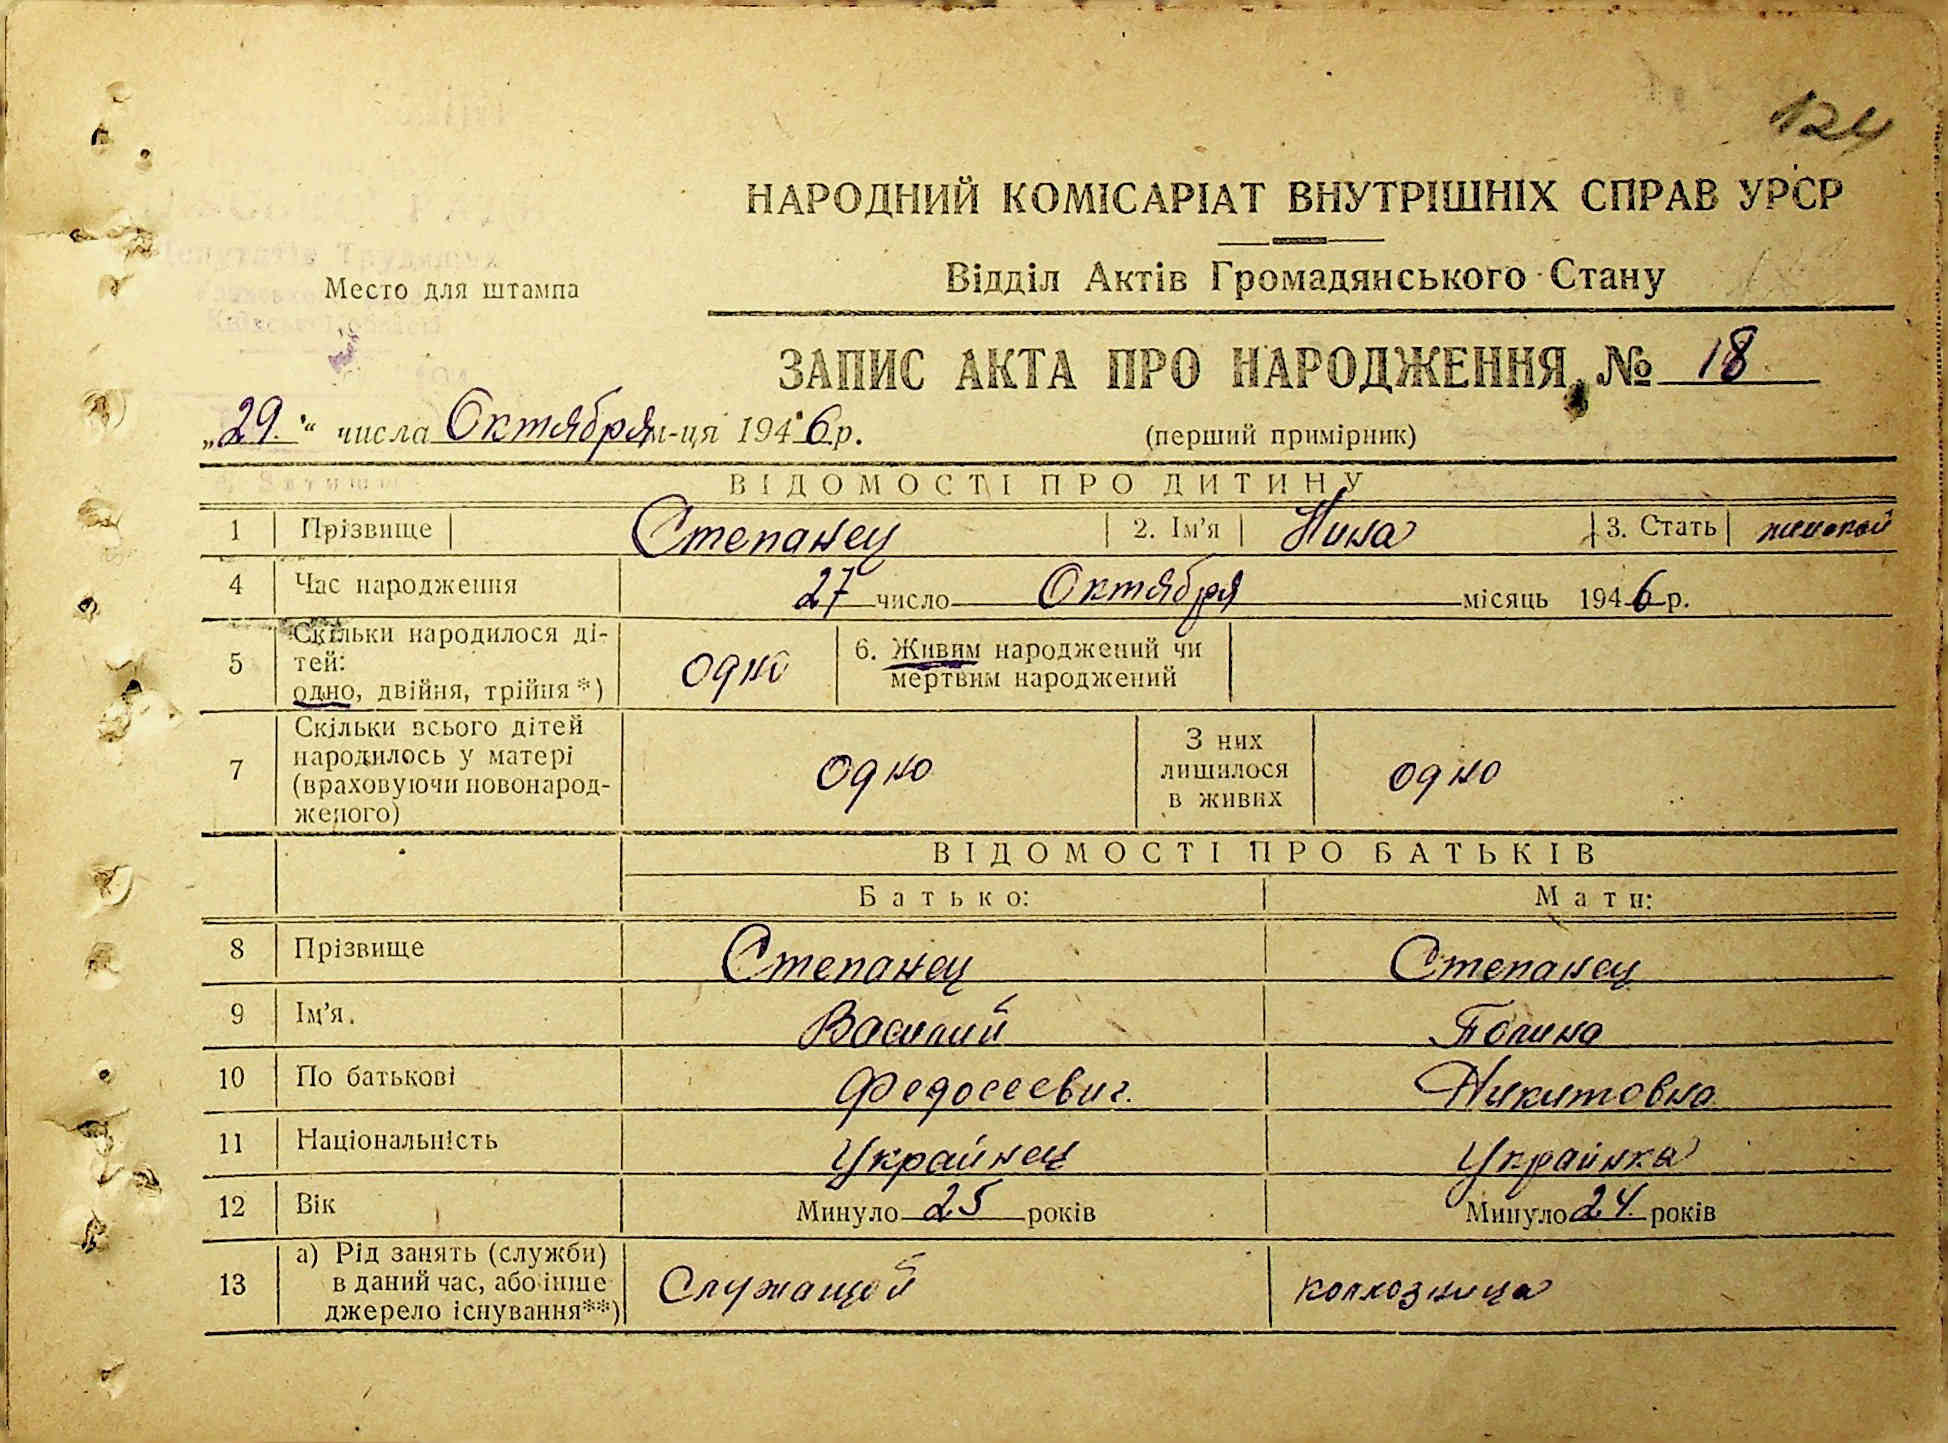 124
НАРОДНИЙ КОМІСАРІАТ ВНУТРІШНІХ СПРАВ УРСР
Відділ Актів Громадянського Стану
Депутатів Трудящих
Место для штампа
Київської області
ЗАПИС АКТА ПРО НАРОДЖЕННЯ № 18
„29." числа Октября м-ця 1946 р.
(перший примірник)
ВІДОМОСТІ ПРО ДИТИНУ
1 Прізвище Степанец 2. Ім'я Нина 3. Стать женской
4 Час народження 27 число Октября місяць 1946 р.
5 Скільки народилося ді-
тей:
одно, двійня, трійня*) одно
6. Живим народжений чи
мертвим народжений
7 Скільки всього дітей
народилось у матері
(враховуючи новонарод-
женого) одно
З них
лишилося
в живих одно
ВІДОМОСТІ ПРО БАТЬКІВ
Батько: Мати:
8 Прізвище Степанец Степанец
9 Ім'я. Василий Полина
10 По батькові Федосеевич. Никитовна
11 Національність Украйнец Украинка
12 Вік Минуло 25 років Минуло 24 років
13 а) Рід занять (служби)
в даний час, або інше
джерело існування**) Служащой колхозница